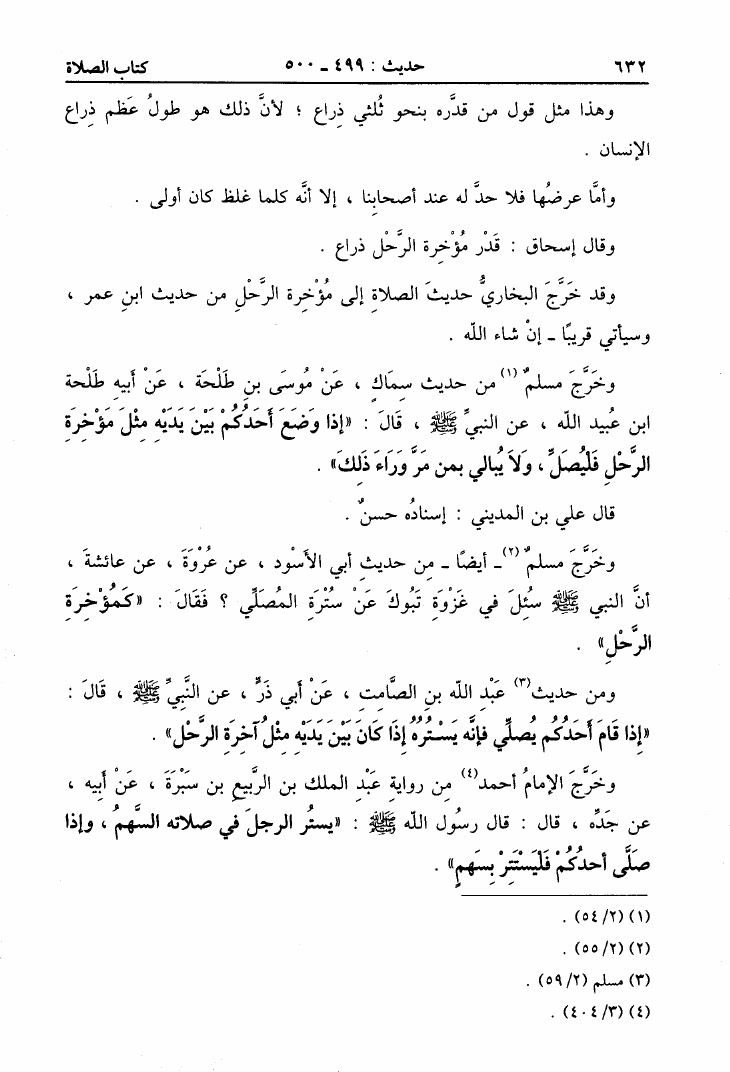 ٦٣٢ حديث : ٤٩٩ ـ ٥٠٠ كتاب الصلاة
وهذا مثل قول من قدَّره بنحو ثُلثي ذِراع ؛ لأنَّ ذلك هو طولُ عَظم ذِراع
الإنسان .
وأمَّا عرضُها فلا حدَّ له عند أصحابِنا ، إلا أنَّه كلما غلظ كان أولى .
وقال إسحاق : قَدْر مُؤْخِرة الرَّحْل ذراع .
وقد خَرَّجَ البخاريُّ حديثَ الصلاةِ إلى مُؤْخِرة الرَّحْلِ من حديث ابنِ عمر ،
وسيأتي قريبًا ـ إنْ شاء الله .
وخَرَّجَ مسلمٌ (١) من حديث سِماكٍ ، عَنْ مُوسَى بنِ طَلْحَة ، عَنْ أبيه طَلْحة
ابن عُبيد الله ، عن النبيِّ ﷺ ، قَالَ : «إذا وَضَعَ أَحَدُكُمْ بَيْنَ يَدَيْهِ مِثْلَ مَؤْخِرَةِ
الرَّحْلِ فَلْيُصَلِّ ، وَلاَ يُبالي بمن مَرَّ وَرَاءَ ذَلِكَ» .
قال علي بن المديني : إسنادُه حسنٌ .
وخَرَّجَ مسلمٌ (٢) ـ أيضًا ـ مِن حديثِ أبي الأَسْود ، عن عُرْوَةَ ، عن عائشةَ ،
أنَّ النبي ﷺ سُئِلَ في غَزْوَةِ تَبُوكَ عَنْ سُتْرَةِ المُصَلِّي ؟ فَقَالَ : «كَمُؤْخِرَةِ
الرَّحْلِ» .
ومن حديث (٣) عَبْد الله بنِ الصَّامِت ، عَنْ أبي ذَرٍّ ، عن النَّبيِّ ﷺ ، قَالَ :
«إذا قَامَ أَحَدُكُم يُصلِّي فإنَّه يَسْتُرُهُ إِذَا كَانَ بَيْنَ يَدَيْهِ مِثْلُ آخِرَةِ الرَّحْل» .
وخَرَّجَ الإمامُ أحمد (٤) مِن روايةِ عَبْدِ الملك بن الرَّبيعِ بن سَبْرَةَ ، عَنْ أبيه ،
عن جَدِّه ، قال : قال رسُول الله ﷺ : «يستُر الرجلَ في صلاته السَّهمُ ، وإذا
صَلَّى أحدُكُمْ فَلْيَسْتَتِرْ بِسَهمٍ» .
(١) (٥٤/٢) .
(٢) (٥٥/٢) .
(٣) مسلم (٥٩/٢) .
(٤) (٤٠٤/٣) .